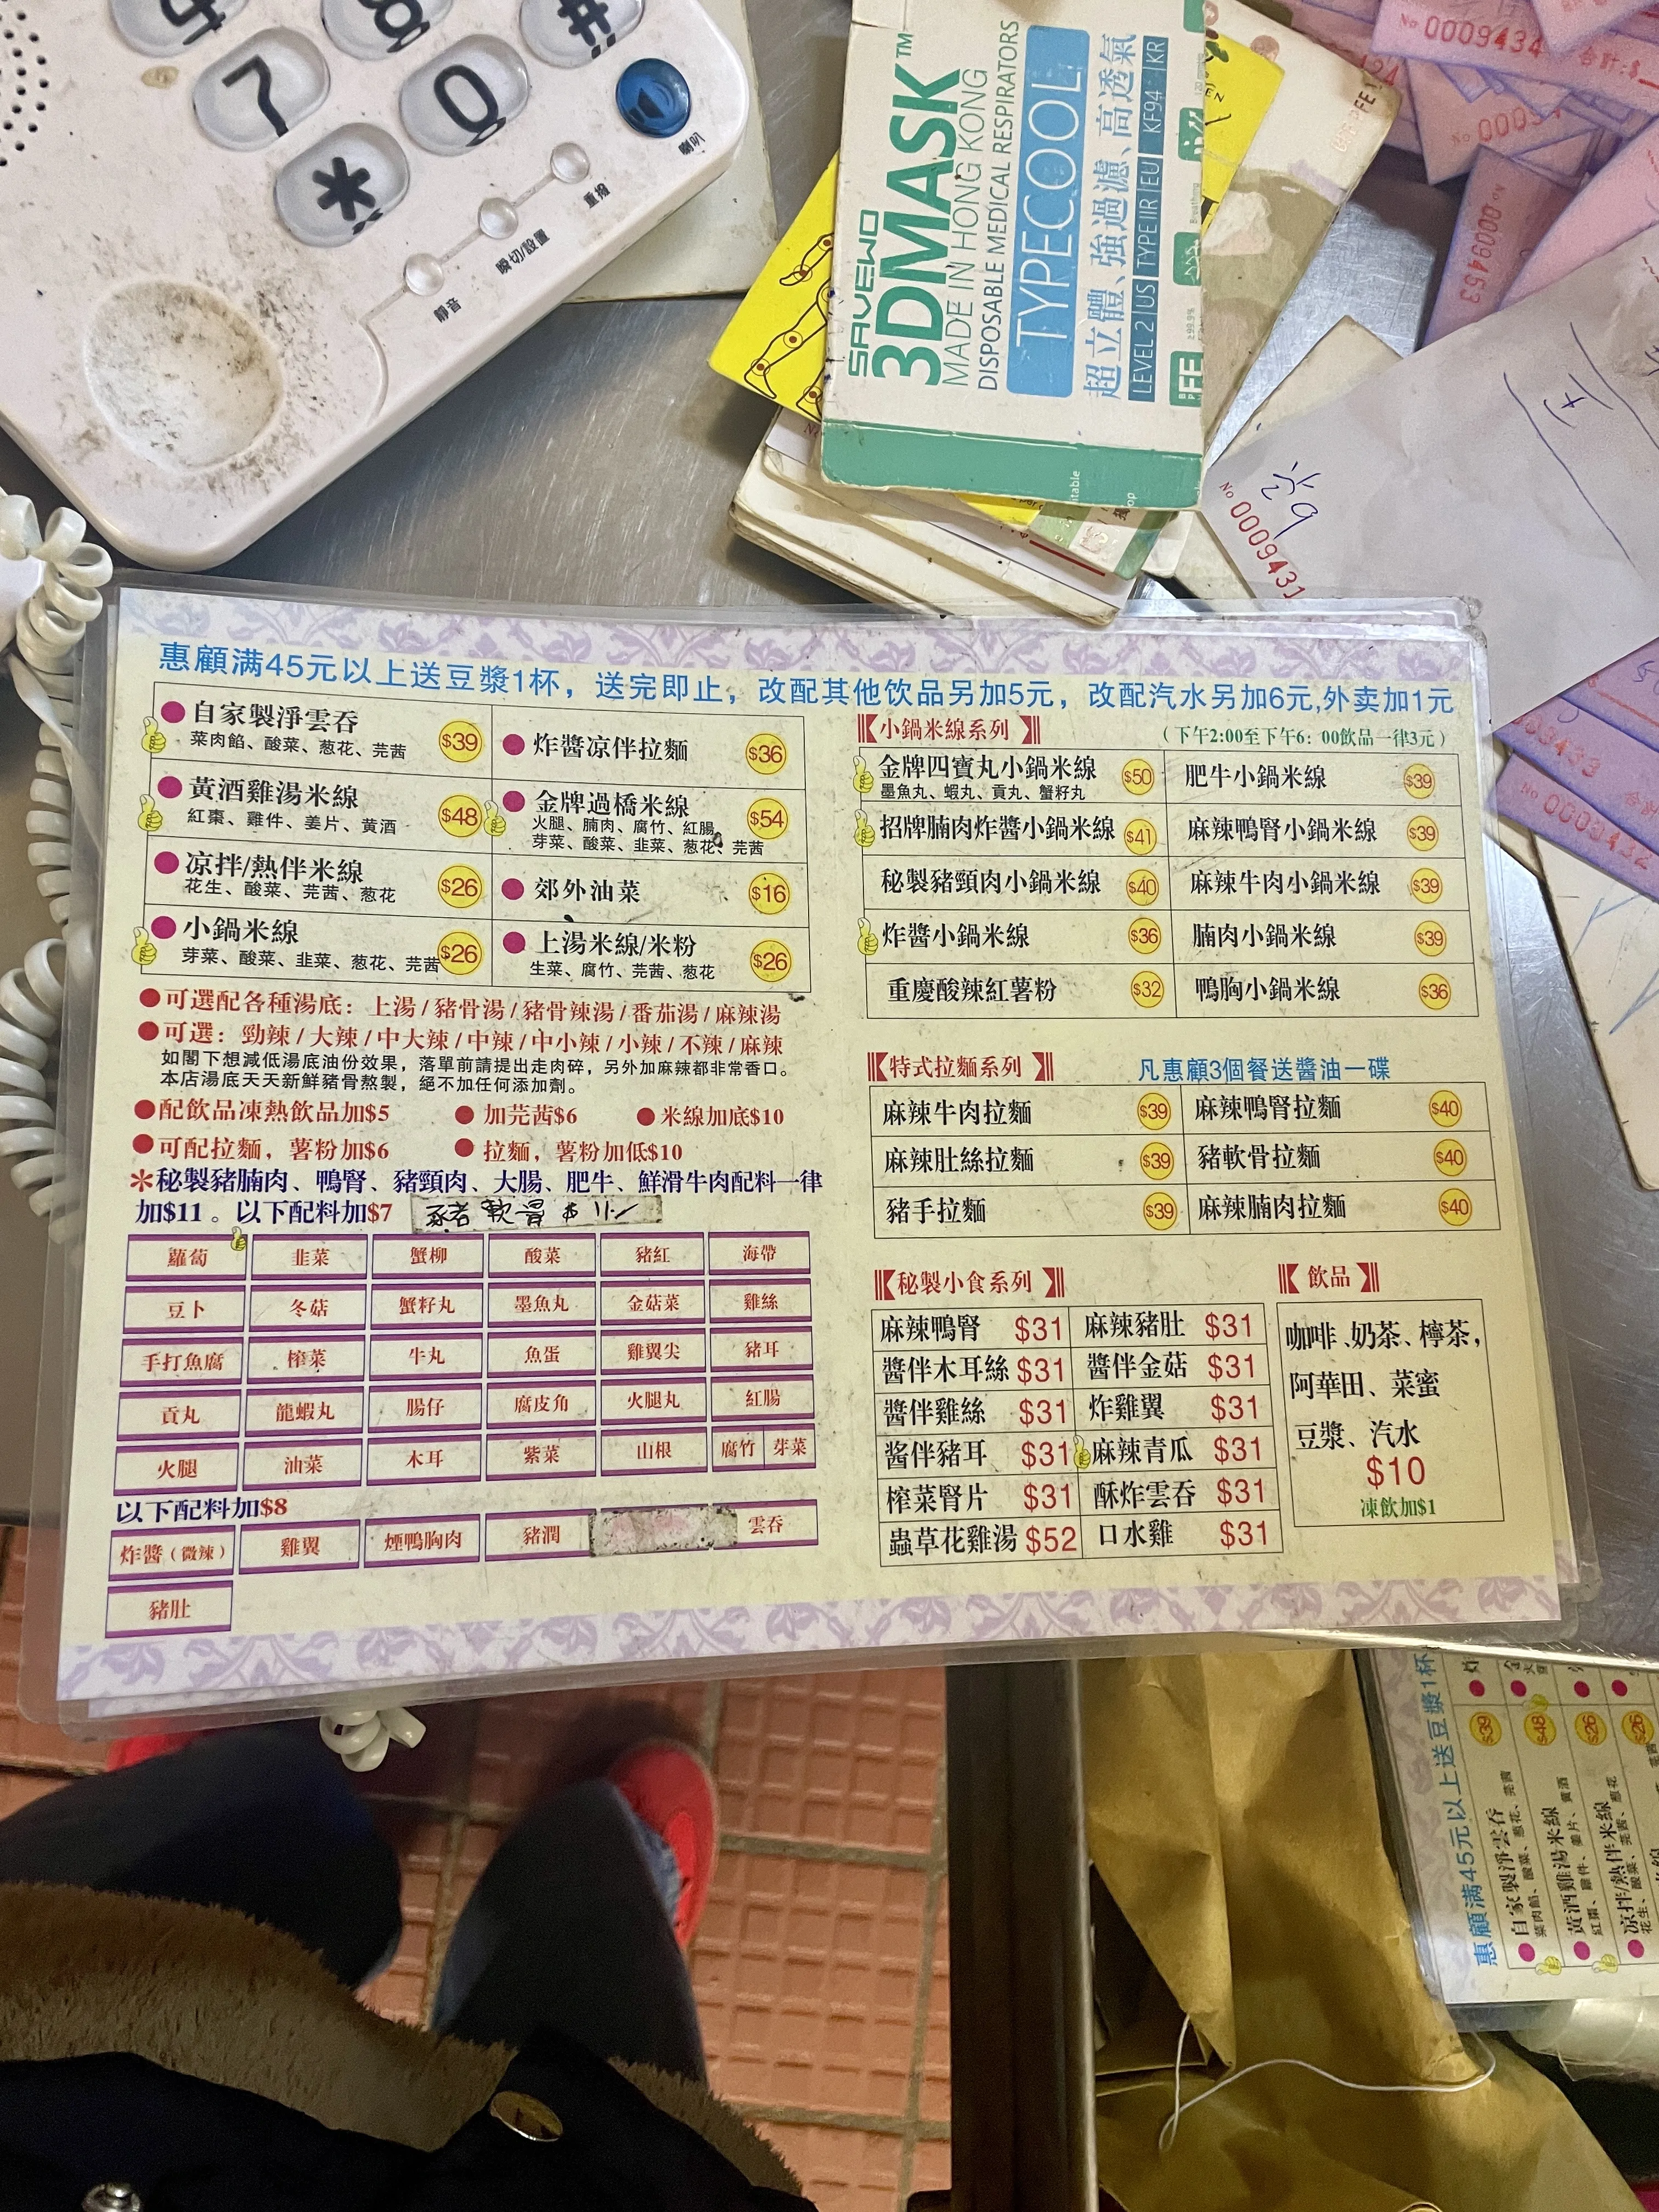 7
8
#
0
*
喇叭
重撥
瞬切/設置
靜音
SAVEWO
3DMASK™
MADE IN HONG KONG
DISPOSABLE MEDICAL RESPIRATORS
TYPECOOL
超立體、強過濾、高透氣
LEVEL 2 | US TYPE IIR | EU KF94 | KR
№ 0009434
合計:$
№ 0009453
№ 0009431
№ 0009432
惠顧满45元以上送豆漿1杯，送完即止，改配其他饮品另加5元，改配汽水另加6元,外卖加1元
自家製淨雲吞 $39
菜肉餡、酸菜、葱花、芫茜
炸醬凉伴拉麵 $36
黃酒雞湯米線 $48
紅棗、雞件、姜片、黄酒
金牌過橋米線 $54
火腿、腩肉、腐竹、紅腸
芽菜、酸菜、韭菜、葱花、芫茜
凉拌/熱伴米線 $26
花生、酸菜、芫茜、葱花
郊外油菜 $16
小鍋米線 $26
芽菜、酸菜、韭菜、葱花、芫茜
上湯米線/米粉 $26
生菜、腐竹、芫茜、葱花
●可選配各種湯底：上湯/豬骨湯/豬骨辣湯/番茄湯/麻辣湯
●可選：勁辣/大辣/中大辣/中辣/中小辣/小辣/不辣/麻辣
如閣下想減低湯底油份效果，落單前請提出走肉碎，另外加麻辣都非常香口。
本店湯底天天新鮮豬骨熬製，絕不加任何添加劑。
●配飲品凍熱飲品加$5 ●加芫茜$6 ●米線加底$10
●可配拉麵，薯粉加$6 ●拉麵，薯粉加低$10
*秘製豬腩肉、鴨腎、豬頸肉、大腸、肥牛、鮮滑牛肉配料一律
加$11。以下配料加$7 豬軟骨$11
蘿蔔 韭菜 蟹柳 酸菜 豬紅 海帶
豆卜 冬菇 蟹籽丸 墨魚丸 金菇菜 雞絲
手打魚腐 榨菜 牛丸 魚蛋 雞翼尖 豬耳
貢丸 龍蝦丸 腸仔 腐皮角 火腿丸 紅腸
火腿 油菜 木耳 紫菜 山根 腐竹 芽菜
以下配料加$8
炸醬（微辣） 雞翼 煙鴨胸肉 豬潤 雲吞
豬肚
小鍋米線系列
(下午2:00至下午6：00飲品一律3元)
金牌四寶丸小鍋米線 $50 肥牛小鍋米線 $39
墨魚丸、蝦丸、貢丸、蟹籽丸
招牌腩肉炸醬小鍋米線 $41 麻辣鴨腎小鍋米線 $39
秘製豬頸肉小鍋米線 $40 麻辣牛肉小鍋米線 $39
炸醬小鍋米線 $36 腩肉小鍋米線 $39
重慶酸辣紅薯粉 $32 鴨胸小鍋米線 $36
特式拉麵系列
凡惠顧3個餐送醬油一碟
麻辣牛肉拉麵 $39 麻辣鴨腎拉麵 $40
麻辣肚絲拉麵 $39 豬軟骨拉麵 $40
豬手拉麵 $39 麻辣腩肉拉麵 $40
秘製小食系列
麻辣鴨腎 $31 麻辣豬肚 $31
醬伴木耳絲 $31 醬伴金菇 $31
醬伴雞絲 $31 炸雞翼 $31
酱伴豬耳 $31 麻辣青瓜 $31
榨菜腎片 $31 酥炸雲吞 $31
蟲草花雞湯 $52 口水雞 $31
飲品
咖啡、奶茶、檸茶,
阿華田、菜蜜
豆漿、汽水
$10
凍飲加$1
惠顧满45元以上送豆漿1杯
自家製淨雲吞 $39
菜肉餡、酸菜、葱花、芫茜
黃酒雞湯米線 $48
紅棗、雞件、姜片、黄酒
凉拌/熱伴米線 $26
花生、酸菜、芫茜、葱花
$26